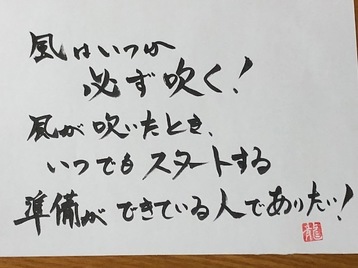 風はいつか
必ず吹く！
風が吹いたとき、
いつでもスタートする
準備ができている人でありたい！
龍